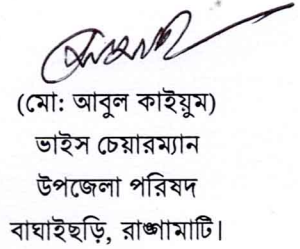 (মো: আবুল কাইয়ুম)
ভাইস চেয়ারম্যান
উপজেলা পরিষদ
বাঘাইছড়ি, রাঙ্গামাটি।